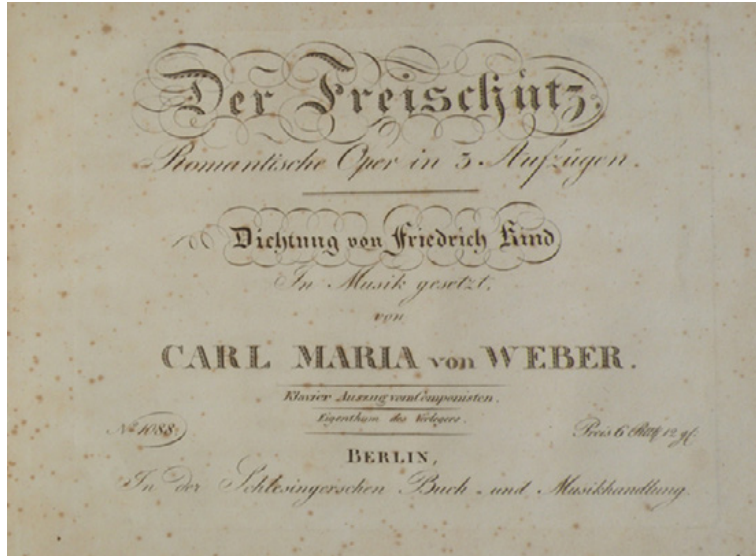 Der Freischütz.
Romantische Oper in 3. Aufzügen.
Dichtung von Friedrich Kind
In Musik gesetzt,
von
CARL MARIA von WEBER.
Klavier Auszug vom Componisten.
Eigenthum des Verlegers.
No. 1088. Preis 6 12 gr.
BERLIN,
In der Schlesingerschen Buch- und Musikhandlung.